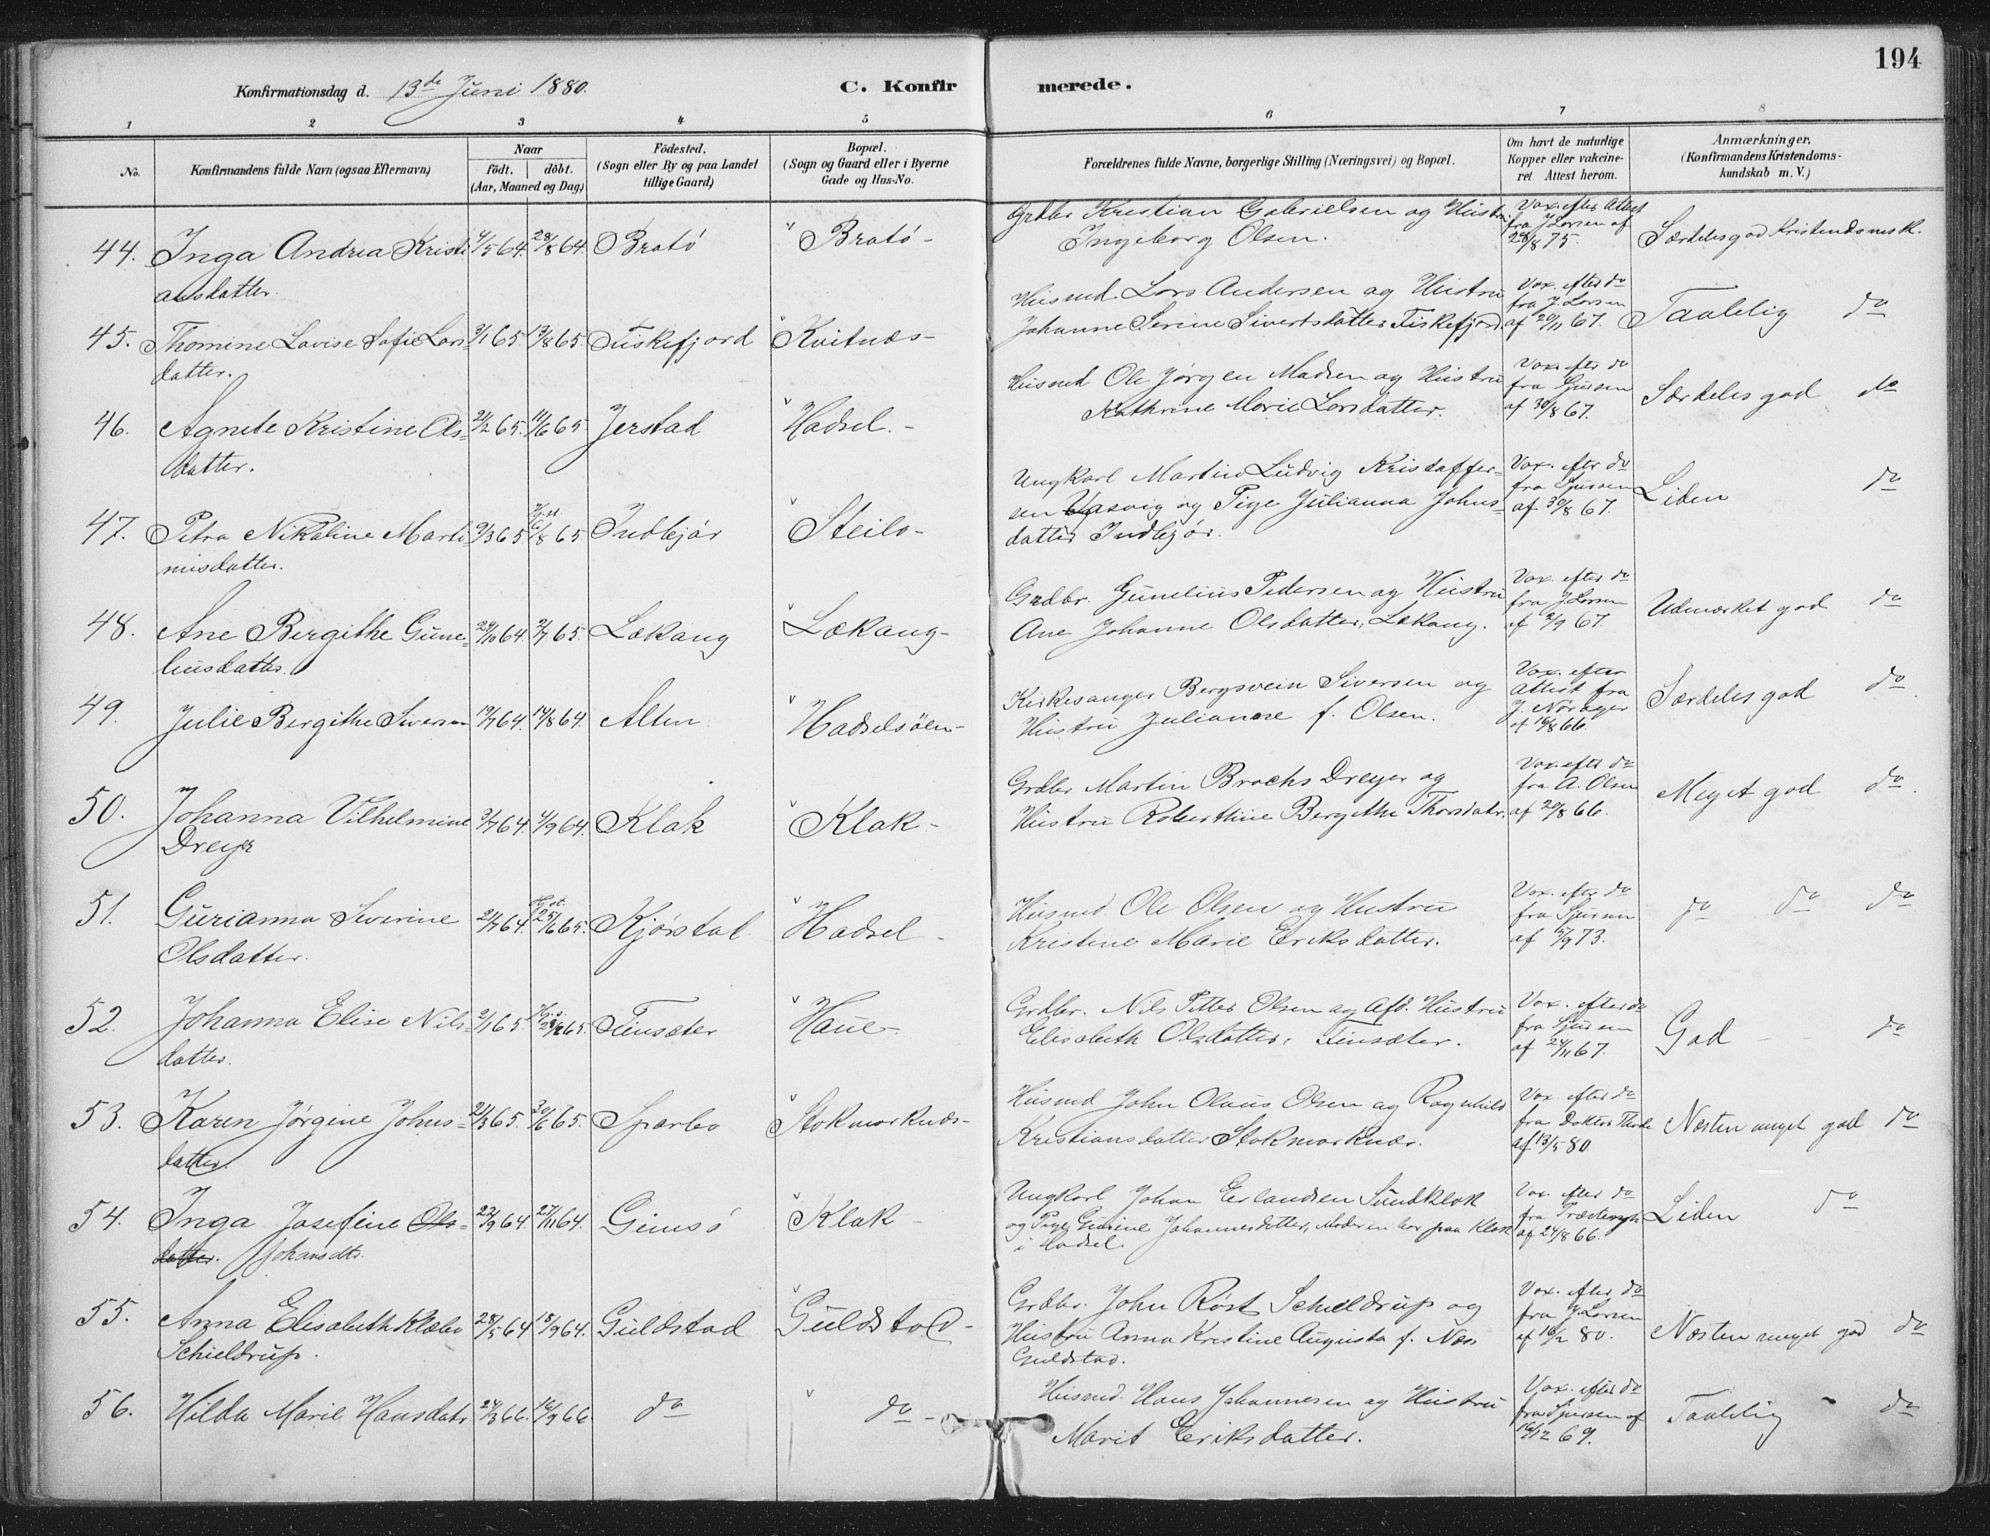 194
Konfirmationsdag d. 13de Juni 1880.
C. Konfirmerede.
1 2 3 4 5 6 7 8
No.
Konfirmandens fulde Navn (ogsaa Efternavn)
Naar
født. døbt.
(Aar, Maaned og Dag)
Födested.
(Sogn eller By og paa Landet
tillige Gaard)
Bopæl.
(Sogn og Gaard eller i Byerne
Gade og Hus-No.
Forældrenes fulde Navne, borgerlige Stilling (Næringsvei) og Bopæl.
Om havt de naturlige
Kopper eller vakcine-
ret. Attest herom.
Anmærkninger,
(Konfirmandens Kristendoms-
kundskab m. V.)
Grdbr Kristian Gabrielsen og Hustru Vax. efter Attest
44. Inga Andrea Kristi 4/5 64. 28/8 64. Bratö Bratö - Ingeborg Olsen. fra J. Larsen af 28/8 75. Særdeles god Kristendomsk.
ansdatter.
Husmd. Lars Andersen og Hustru Vax. efter do
45. Thomine Lovise Sofie Lars- 65. 65. Fiskefjord Kvitnæs - Johanne Serine Sivertsdatter, Fiskefjord. fra J. Larsen af 20/11 67. Taalelig do
datter.
Husmd Ole Jørgen Madsen og Hustru Vax. efter do
46. Agnete Kristine Ols- 65. 11/6 65 Jerstad Hadsel. - Kathrine Marie Larsdatter. fra Sjursen af 30/8 67. Særdeles god do
datter.
Ungkarl Martin Ludvig Kristoffer- Vax. efter do
47. Petra Nikoline Marti 65 6/8 65 Indbjör Steilo - sen Vasvig og Pige Julianna Johns- fra Sjursen af 30/8 67. Liden do
nusdatter. datter Indbjör.
Grdbr. Gunelius Pedersen og Hustru Vax. efter do
48. Ane Bergithe Gune- 64. 2/7 65. Lækang Lækang - Ane Johanne Olsdatter, Lækang. fra J Larsen af 2/9 67. Udmærket god do
liusdatter.
Kirkesanger Bergsvein Siversen og Vax. efter
49. Julie Bergithe Siversen 64. 14/8 64. Alten Hadselsöen - Hustru Julianne f. Olsen. Attest fra J. Norager af 16/8 66. Særdeles god do
Grdbr Martin Brochs Dreyer og Vax. efter do
50. Johanna Vilhelmine 3/7 64. 4/9 64. Klak Klak - Hustru Roberthine Bergithe Thorsdatr. fra A. Olsen af 20/8 66. Meget god do.
Dreyer
51. Gurianna Severine 2/7 64. 25/6 65. Kjørstad Hadsel - Husmd. Ole Olsen og Hustru Vax. efter do
Olsdatter. Kristine Marie Eriksdatter. fra Sjursen af 5/9 73. do do do
52. Johanna Elise Nils- 65. 65. Finsæter Haue - Grdbr. Nils Petter Olsen og Afd. Hustru Vax. efter do
datter. Elisabeth Olsdatter, Finsæter. fra Sjursen af 24/11 67. God do
53. Karen Jørgine Johns- 2/3 65. 30/6 65. Sparbo Stokmarknæs - Husmd John Olaus Olsen og Ragnhild Vax. efter do
datter. Kristiansdatter Stokmarknæs. fra Doktor af 13/5 80. Næsten meget god do
54. Inga Josefine Ols- 22/9 64. 27/11 64. Gimsö Klak - Ungkarl Johan Erlandsen Sundklak Vax. efter do
datter. Johansdtr. og Pige Gurine Johannesdatter, Moderen bor paa Klak fra af 24/8 66. Liden do
i Hadsel.
55. Anna Elisabeth Klæbo 28/5 64 18/9 64. Guldstad Guldstad - Grdbr. John Røst Schieldrup og Vax. efter do
Schieldrup. Hustru Anna Kristine Augusta f. Næs fra J. Larsen af 16/2 80. Næsten meget god do
Guldstad.
56. Hilda Marie Hansdatr 24/3 66. 16/9 66. do do - Husmd. Hans Johannesen og Hustru Vax. efter do
Marit Eriksdatter. fra Sjursen af 16/12 69. Taalelig - do